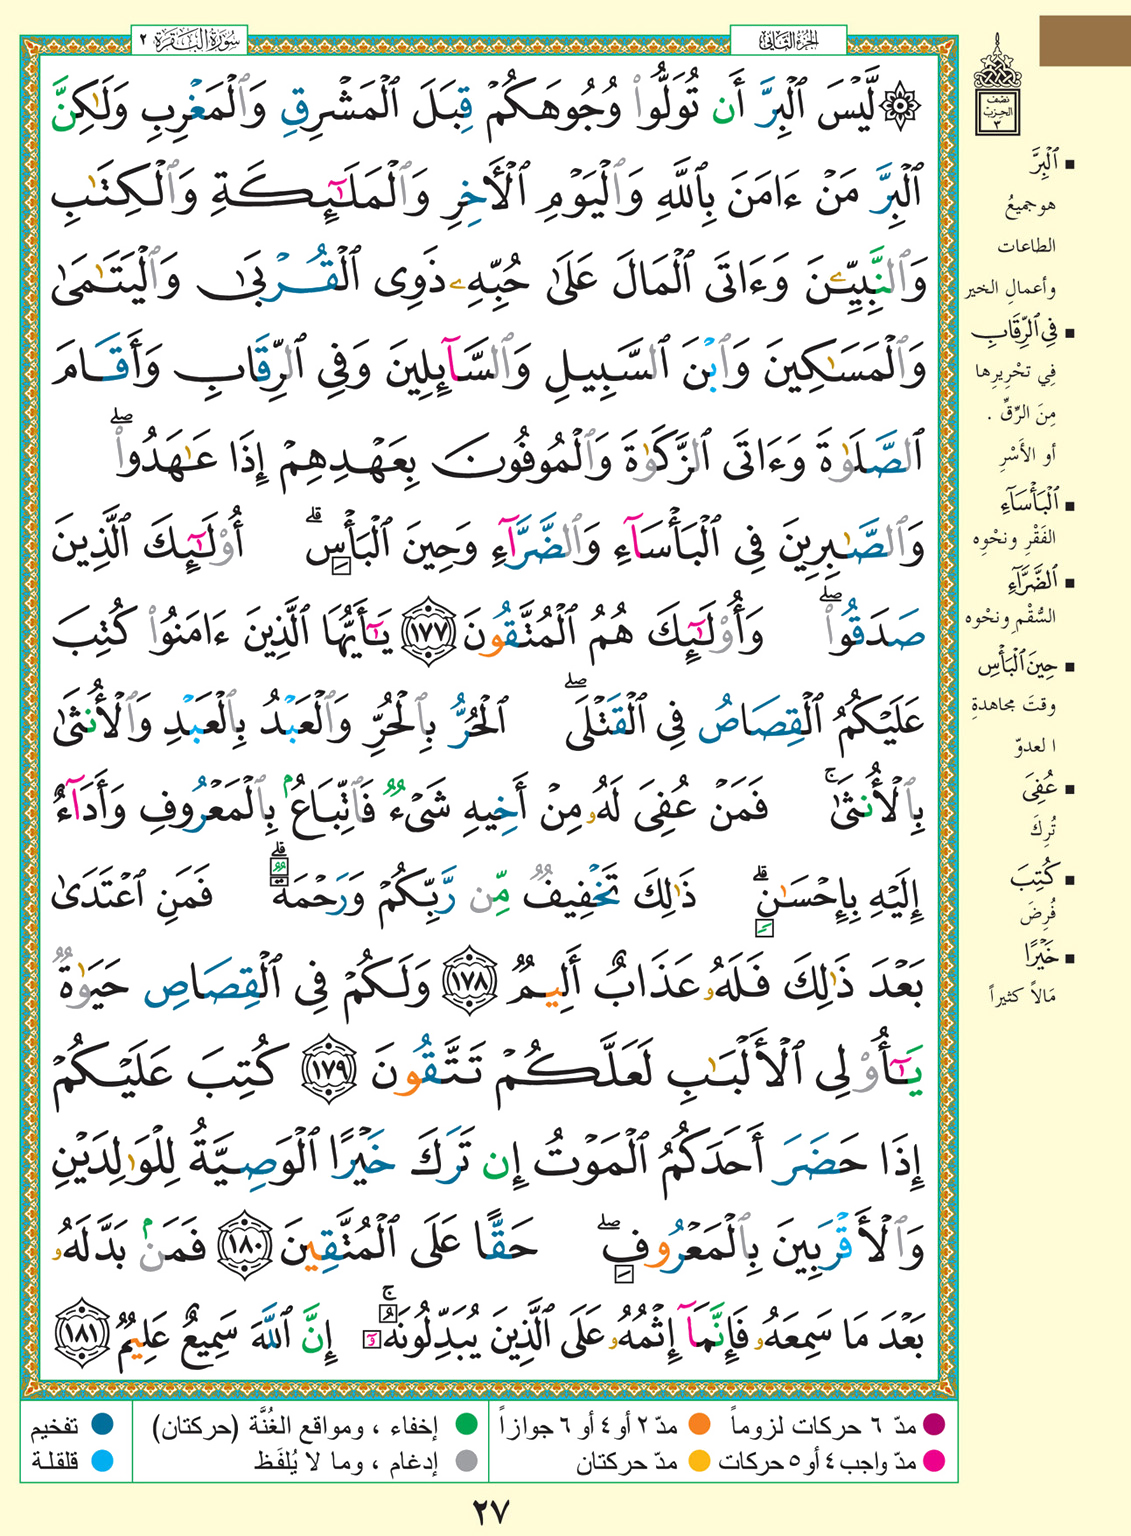 سُورَةُ البَقَرَة ٢
الجُزءُ الثَّانِي
۞ لَّيْسَ ٱلْبِرَّ أَن تُوَلُّوا۟ وُجُوهَكُمْ قِبَلَ ٱلْمَشْرِقِ وَٱلْمَغْرِبِ وَلَـٰكِنَّ
ٱلْبِرَّ مَنْ ءَامَنَ بِٱللَّهِ وَٱلْيَوْمِ ٱلْـَٔاخِرِ وَٱلْمَلَـٰٓئِكَةِ وَٱلْكِتَـٰبِ
وَٱلنَّبِيِّـۧنَ وَءَاتَى ٱلْمَالَ عَلَىٰ حُبِّهِۦ ذَوِى ٱلْقُرْبَىٰ وَٱلْيَتَـٰمَىٰ
وَٱلْمَسَـٰكِينَ وَٱبْنَ ٱلسَّبِيلِ وَٱلسَّآئِلِينَ وَفِى ٱلرِّقَابِ وَأَقَامَ
ٱلصَّلَوٰةَ وَءَاتَى ٱلزَّكَوٰةَ وَٱلْمُوفُونَ بِعَهْدِهِمْ إِذَا عَـٰهَدُوا۟ ۖ
وَٱلصَّـٰبِرِينَ فِى ٱلْبَأْسَآءِ وَٱلضَّرَّآءِ وَحِينَ ٱلْبَأْسِ ۗ أُو۟لَـٰٓئِكَ ٱلَّذِينَ
صَدَقُوا۟ ۖ وَأُو۟لَـٰٓئِكَ هُمُ ٱلْمُتَّقُونَ ١٧٧ يَـٰٓأَيُّهَا ٱلَّذِينَ ءَامَنُوا۟ كُتِبَ
عَلَيْكُمُ ٱلْقِصَاصُ فِى ٱلْقَتْلَى ۖ ٱلْحُرُّ بِٱلْحُرِّ وَٱلْعَبْدُ بِٱلْعَبْدِ وَٱلْأُنثَىٰ
بِٱلْأُنثَىٰ ۚ فَمَنْ عُفِىَ لَهُۥ مِنْ أَخِيهِ شَىْءٌ فَٱتِّبَاعٌۢ بِٱلْمَعْرُوفِ وَأَدَآءٌ
إِلَيْهِ بِإِحْسَـٰنٍ ۗ ذَٰلِكَ تَخْفِيفٌ مِّن رَّبِّكُمْ وَرَحْمَةٌ ۗ فَمَنِ ٱعْتَدَىٰ
بَعْدَ ذَٰلِكَ فَلَهُۥ عَذَابٌ أَلِيمٌ ١٧٨ وَلَكُمْ فِى ٱلْقِصَاصِ حَيَوٰةٌ
يَـٰٓأُو۟لِى ٱلْأَلْبَـٰبِ لَعَلَّكُمْ تَتَّقُونَ ١٧٩ كُتِبَ عَلَيْكُمْ
إِذَا حَضَرَ أَحَدَكُمُ ٱلْمَوْتُ إِن تَرَكَ خَيْرًا ٱلْوَصِيَّةُ لِلْوَٰلِدَيْنِ
وَٱلْأَقْرَبِينَ بِٱلْمَعْرُوفِ ۖ حَقًّا عَلَى ٱلْمُتَّقِينَ ١٨٠ فَمَنۢ بَدَّلَهُۥ
بَعْدَ مَا سَمِعَهُۥ فَإِنَّمَآ إِثْمُهُۥ عَلَى ٱلَّذِينَ يُبَدِّلُونَهُۥٓ ۚ إِنَّ ٱللَّهَ سَمِيعٌ عَلِيمٌ ١٨١
نصف
الحزب
٣
ٱلْبِرَّ
هو جميعُ
الطاعات
وأعمالِ الخير
فِى ٱلرِّقَابِ
فِي تحْرِيرِها
مِنَ الرِّقِّ .
أو الأسْرِ
ٱلْبَأْسَآءِ
الفَقْرِ ونحْوِه
ٱلضَّرَّآءِ
السُّقْمِ ونحْوه
حِينَ ٱلْبَأْسِ
وقتَ مجاهدةِ
العدوّ
عُفِىَ
تُرِكَ
كُتِبَ
فُرِضَ
خَيْرًا
مَالاً كثيراً
مدّ ٦ حركات لزوماً مدّ ٢ أو ٤ أو ٦ جوازاً إخفاء ، ومواقع الغُنَّة (حركتان) تفخيم
مدّ واجب ٤ أو ٥ حركات مدّ حركتان إدغام ، وما لا يُلفَظ قلقلة
٢٧